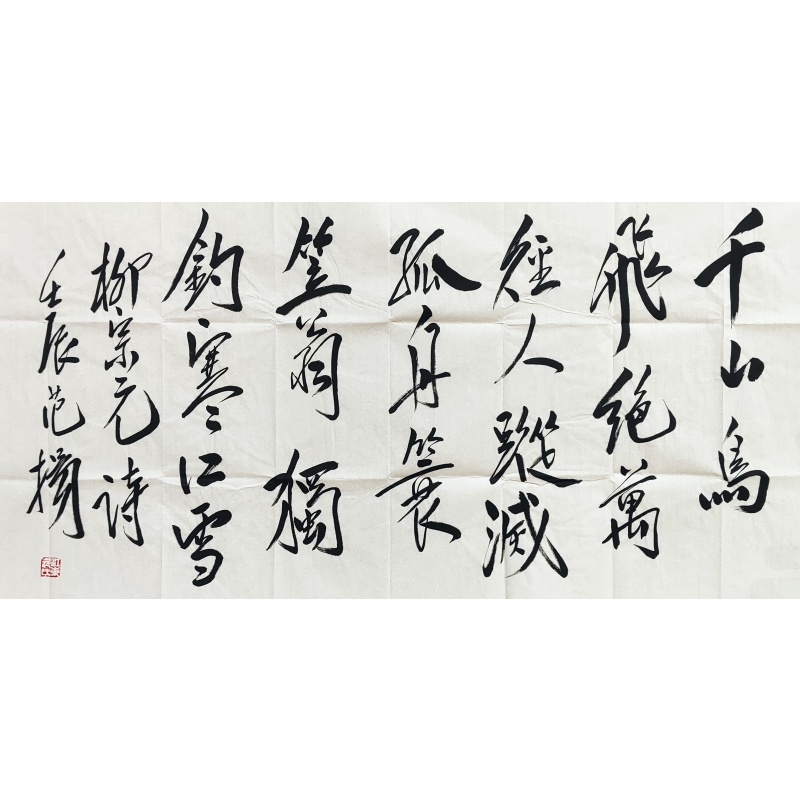 千山鳥
飛絶萬
徑人蹤滅
孤舟蓑
笠翁獨
釣寒江雪
柳宗元詩
壬辰范揚